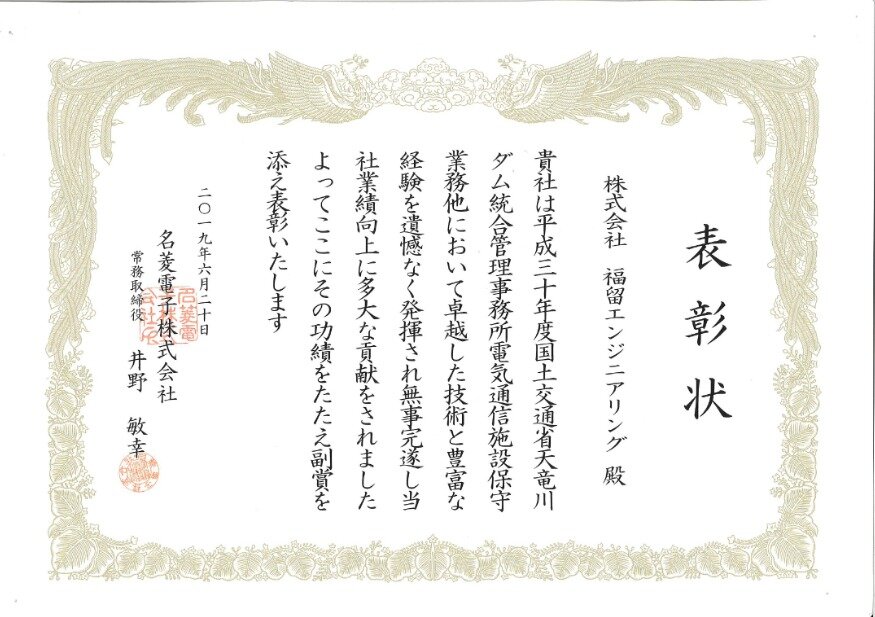 表彰状
株式会社 福留エンジニアリング 殿
貴社は平成三十年度国土交通省天竜川
ダム統合管理事務所電気通信施設保守
業務他において卓越した技術と豊富な
経験を遺憾なく発揮され無事完遂し当
社業績向上に多大な貢献をされました
よってここにその功績をたたえ副賞を
添え表彰いたします
二〇一九年六月二十日
名菱電子株式会社
常務取締役 井野 敏幸